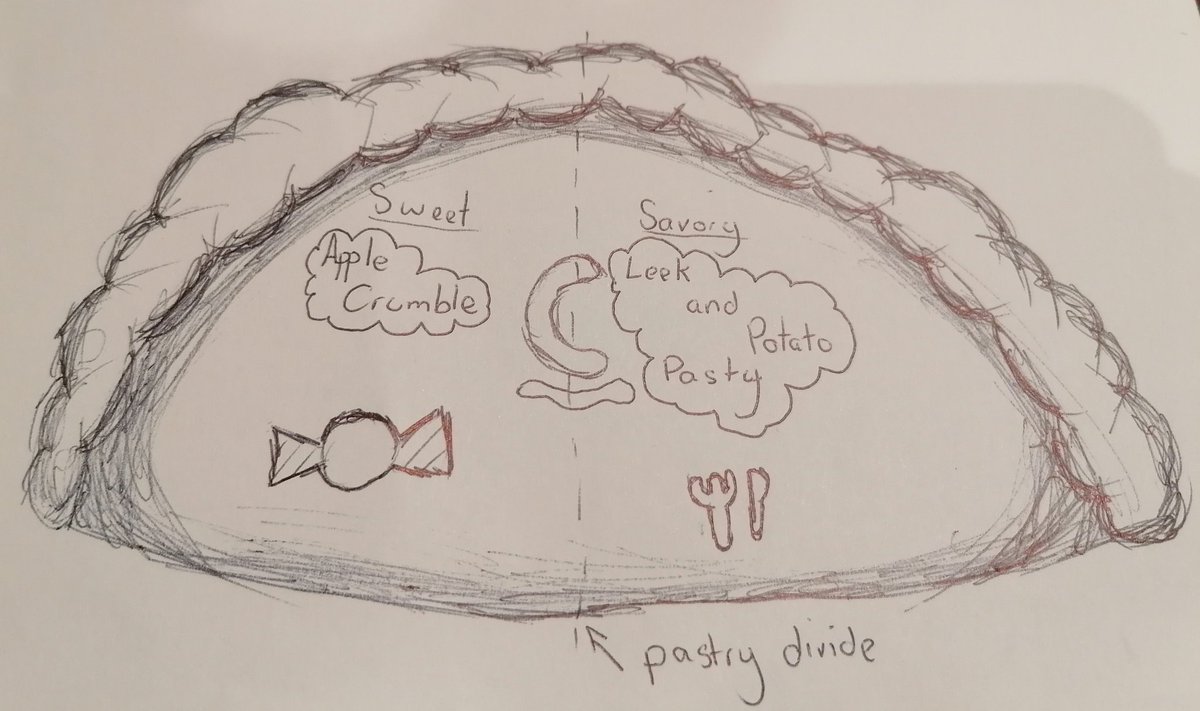 Sweet
Apple
Crumble
Savory
Leek
and
Potato
Pasty
pastry divide